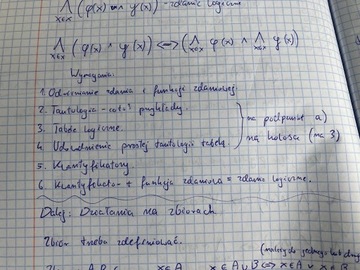 ⋀x∈X (φ(x) ∧ ψ(x)) - zdanie logiczne
⋀x∈X (φ(x) ∧ ψ(x)) <=> (⋀x∈X φ(x) ∧ ⋀x∈X ψ(x))
Wymagania:
1. Odróżnianie zdania i funkcji zdaniowej.
2. Tautologia - co to? przykłady.
3. Tabele logiczne.
4. Udowodnienie prostej tautologii tabelą.
} na podpunkt a)
na kolosa (na 3)
5. Kwantyfikatory.
6. Kwantyfikator + funkcja zdaniowa = zdanie logiczne.
Dalej: Działania na zbiorach
Zbiór trzeba zdefiniować.
(należy do jednego lub
x∈A x∈A∪B <=> x∈A ∨ x∈B